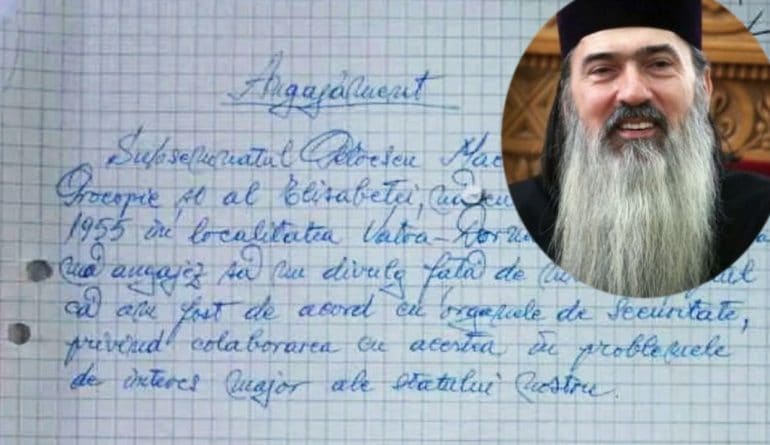 Angajament
Subsemnatul
Procopie și al Elisabetei,
1955 în localitatea Vatra-Dorn
mă angajez să nu divulg față de
că am fost de acord cu organele de securitate,
privind colaborarea cu acestea în problemele
de interes major ale statului nostru.